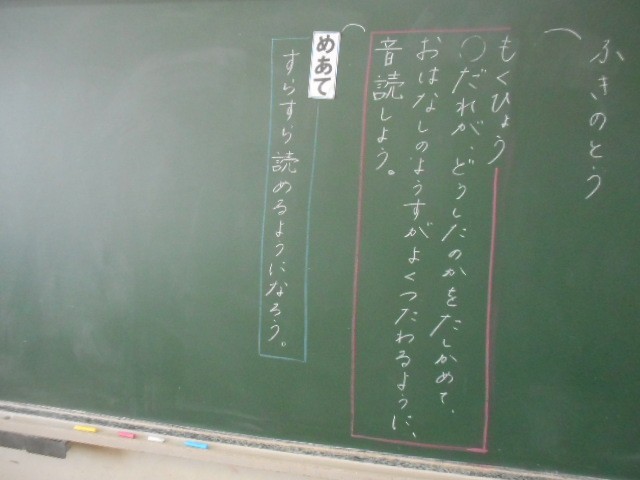 ふきのとう
もくひょう
○だれが、どうしたのかをたしかめて、
おはなしのようすがよくつたわるように、
音読しよう。
めあて
すらすら読めるようになろう。